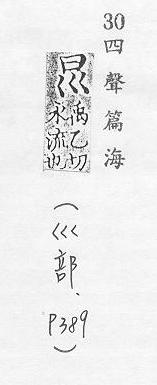 30 四聲篇海
禹乙切
水流也
(巛部、P389)